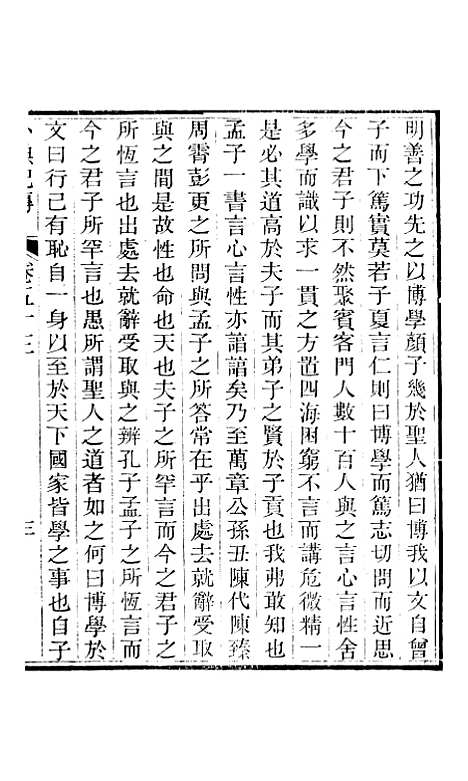 明善之功先之以博學顏子幾於聖人猶曰博我以文自曾
子而下篤實莫若子夏言仁則曰博學而篤志切問而近思
今之君子則不然聚賓客門人數十百人與之言心言性舍
多學而識以求一貫之方置四海困窮不言而講危微精一
是必其道高於夫子而其弟子之賢於子貢也我弗敢知也
孟子一書言心言性亦諄諄矣乃至萬章公孫丑陳代陳臻
周霄彭更之所問與孟子之所答常在乎出處去就辭受取
與之間是故性也命也天也夫子之所罕言而今之君子之
所恆言也出處去就辭受取與之辨孔子孟子之所恆言而
今之君子所罕言也愚所謂聖人之道者如之何曰博學於
文曰行己有恥自一身以至於天下國家皆學之事也自子
卷五十三
三